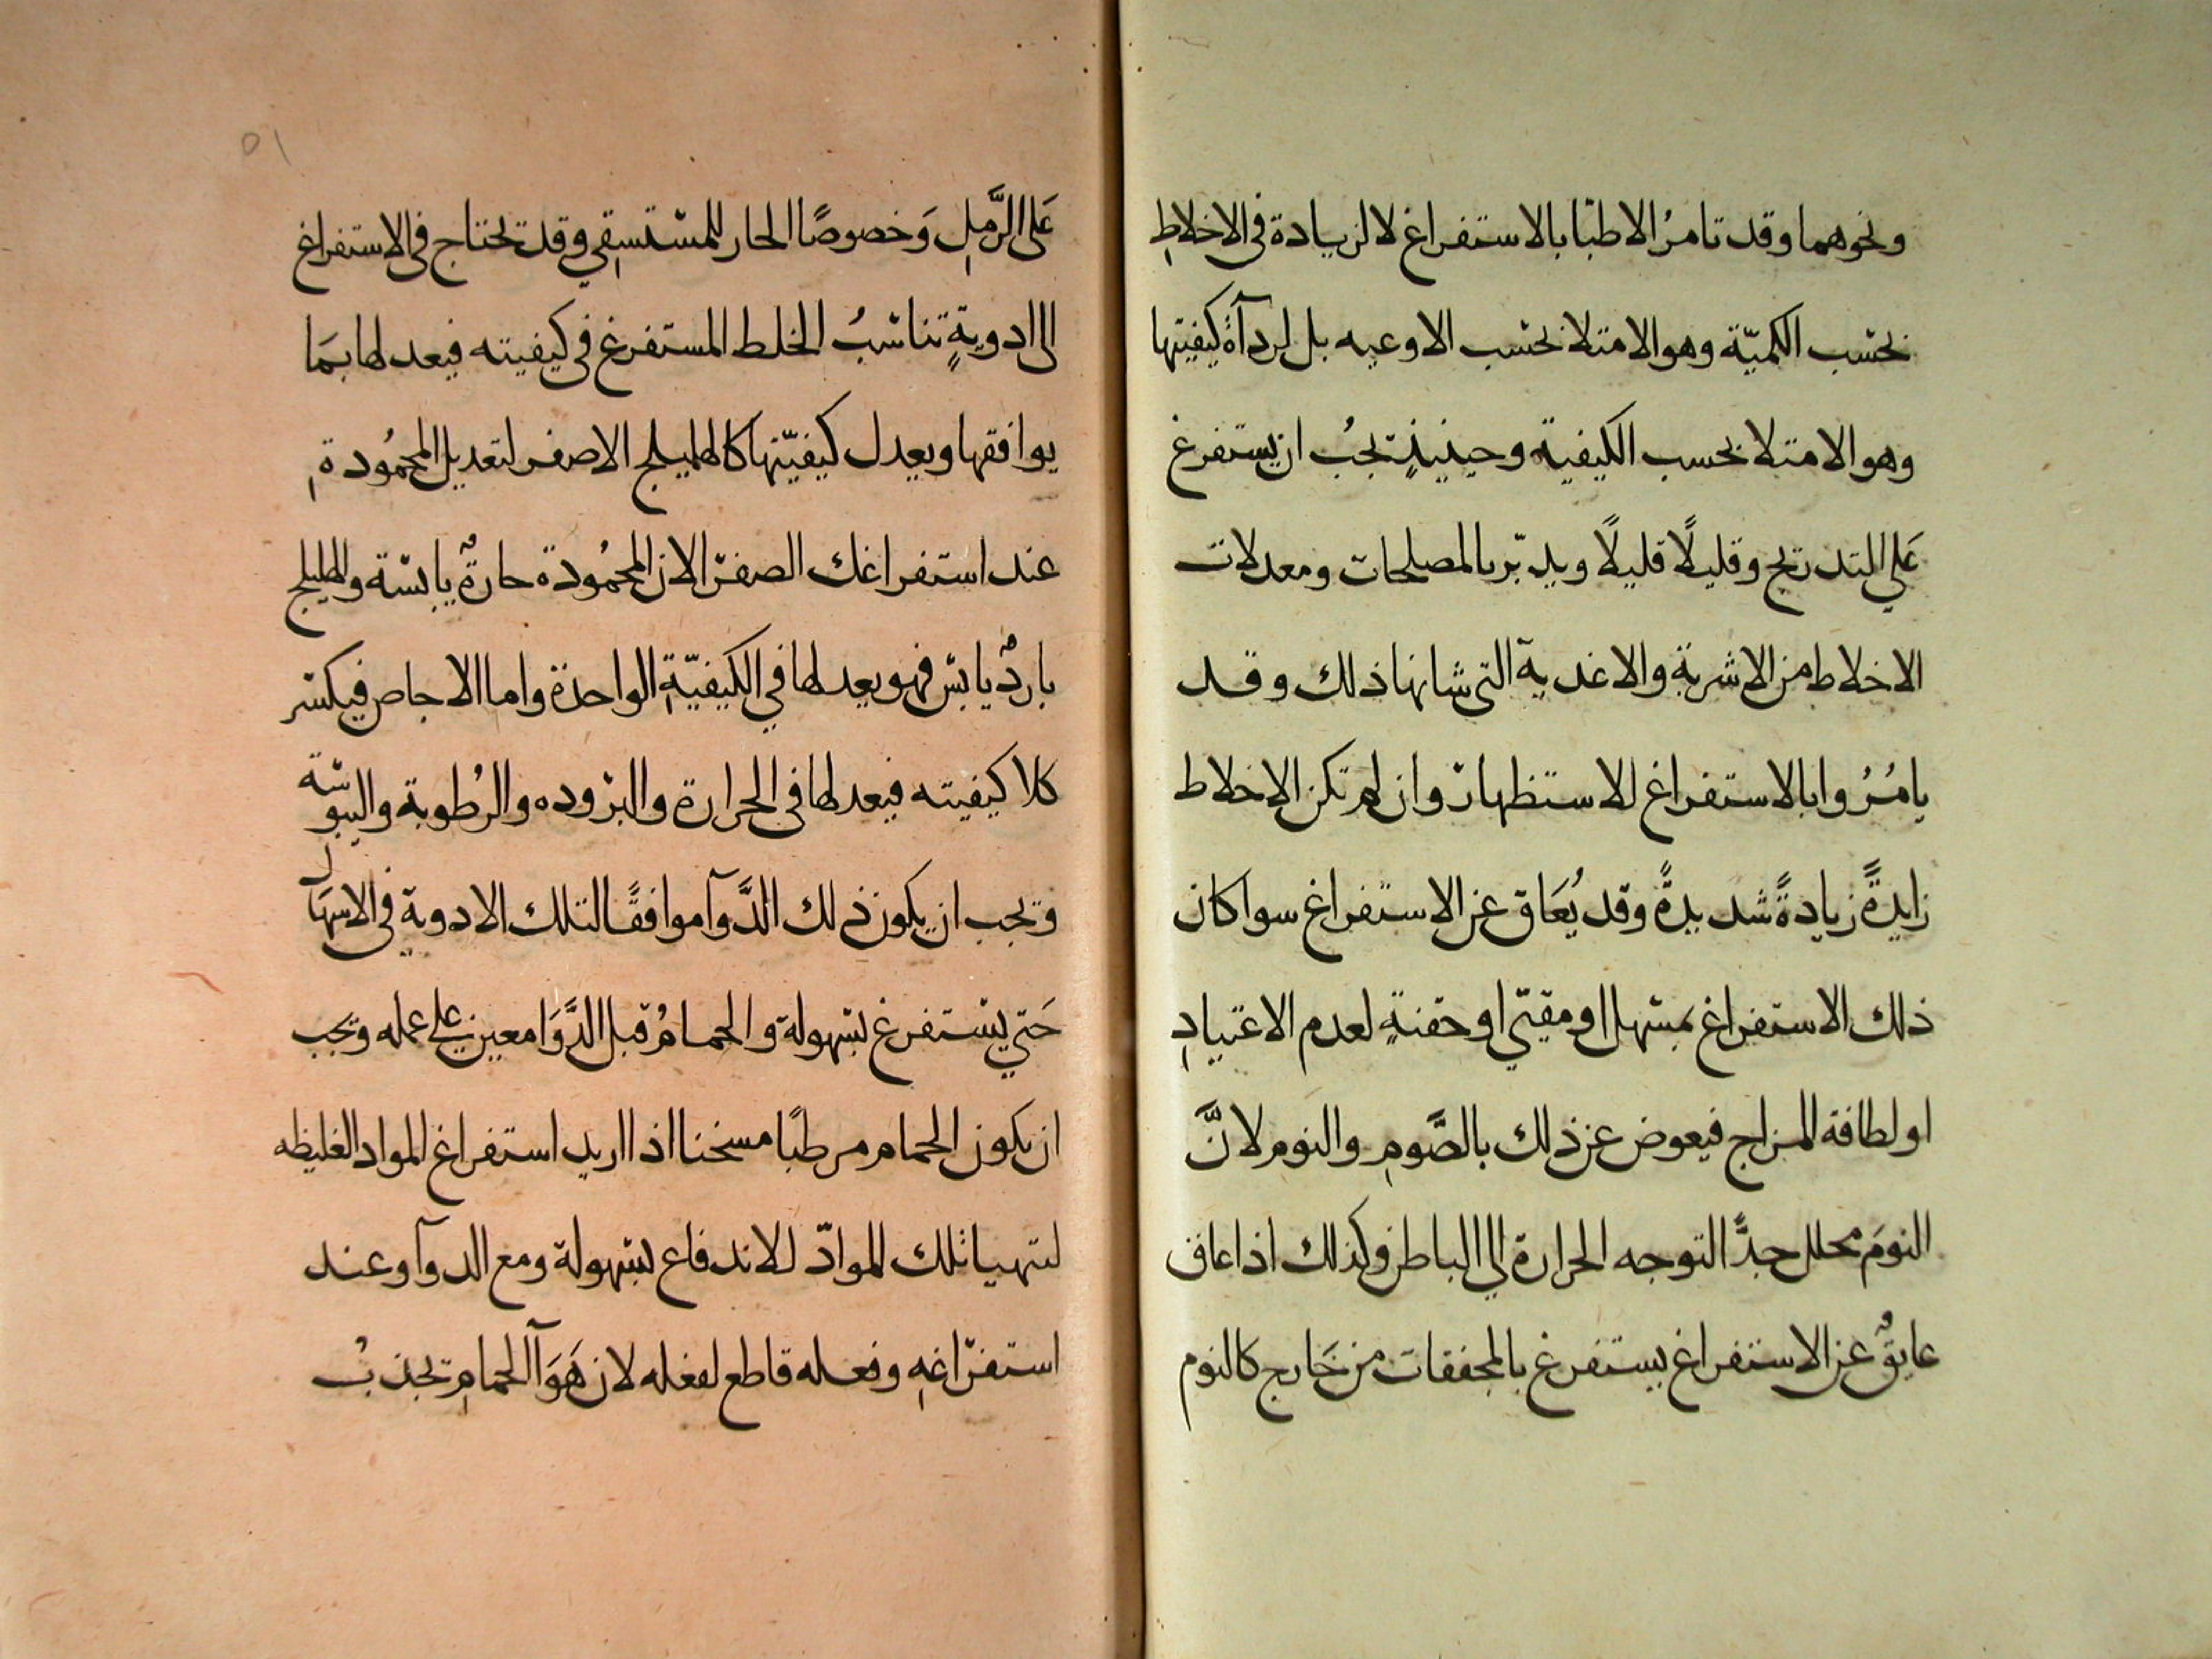 ونحوهما وقد تامرُ الاطبّا بالاستفراغ لا لزيادة فى الاخلاطِ
بحسب الكميّة وهو الامتلا بحسب الاوعيه بل لردآة كيفيتها
وهو الامتلا بحسب الكيفية وحينيذٍ يجبُ ان يستفرغ
عَلي التدريج وقليلًا قليلًا ويدبّر بالمصلحات ومعدلات
الاخلاط من الاشربة والاغدية التى شانها ذلك وقد
يامُرُوا بالاستفراغ للاستظهار وان لم تكن الاخلاط
زايدةً زيادةً شديدةً وقد يُعَاق عن الاستفراغ سوا كان
ذلك الاستفراغ بمسهل او مقيّي او حقنةٍ لعدم الاعتيادِ
او لطافة المزاج فيعوض عن ذلك بالصَّومِ والنوم لانَّ
النومَ محلل جدًّا لتوجه الحرارة الي الباطن وكذلك اذا عاق
عايقٌ عن الاستفراغ يستفرغ بالمجففات من خَارج كالنوم
عَلى الرَّملِ وَخصوصًا الحار للمستسِقي وقد تحتاج فى الاستفراغ
الى ادويةٍ تناسبُ الخلط المستفرغ فى كيفيته فيعدلها بمَا
يوافقها ويعدل كيفيّتها كالهليلج الاصفر لتعديل المحمُودةِ
عند استفراغك الصفرا لان المحمُودة حارةٌ يابسة والهليلج
باردٌ يابس فهو يعدلها في الكيفيّةِ الواحدة واما الاجاص فيكسر
كلا كيفيته فيعدلها فى الحرارة والبروده والرُطوبة واليبوسة
وتجب ان يكون ذلك الدَّوآ موافقًا لتلك الادوية فى الاسهَال
حَتي يستفرغ بسهولة والحمامُ قبل الدَّوَا معين علي عمله وتجب
ان يكون الحمام مرطبًا مسخنا اذا اريد استفراغ المواد الغليظه
لتهيا تلك المواد للاندفاع بسهولة ومع الدوآ وعند
استفرَاغهِ وفعله قاطع لفعله لان هَوَآ الحمامِ تجذبُ
٥١